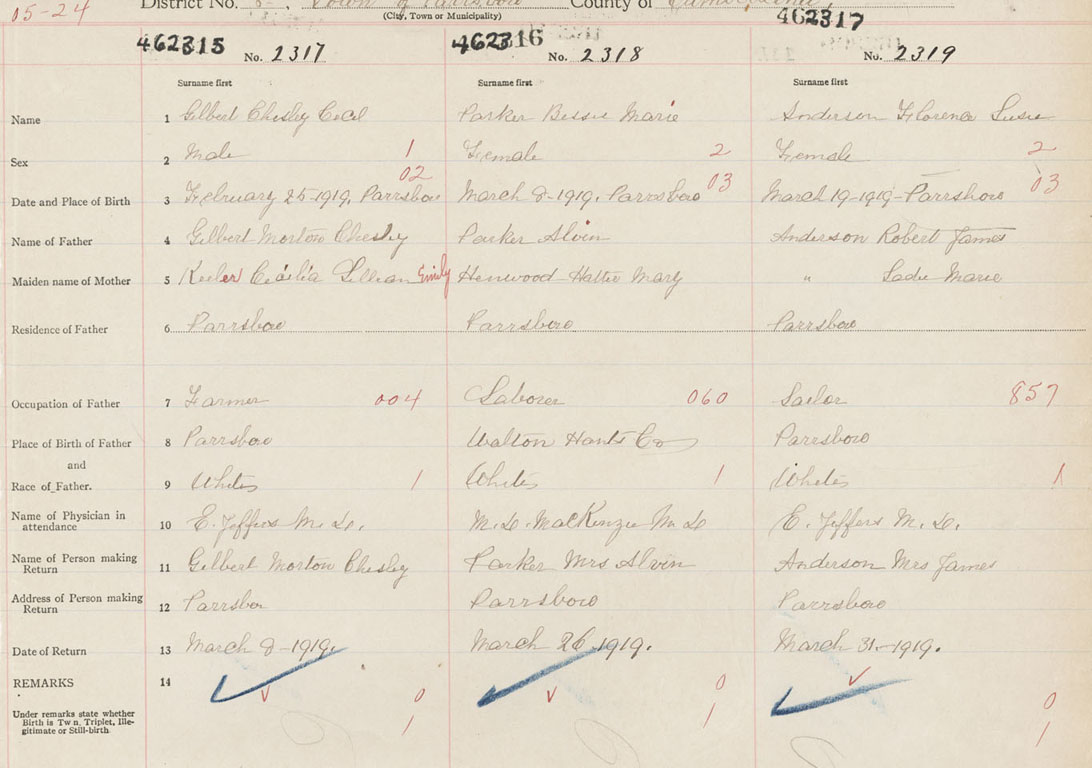 05-24 District No. 5, Town of Parrsboro County of Cumberland
(City, Town or Municipality)
462315 462316 462317
No. 2317 No. 2318 No. 2319
Surname first Surname first Surname first
Name 1 Gilbert Chesley Cecil Parker Bessie Marie Anderson Florence Susie
Sex 2 Male 1 Female 2 Female 2
02 03 03
Date and Place of Birth 3 February 25-1919, Parrsboro March 8-1919, Parrsboro March 19-1919-Parrsboro
Name of Father 4 Gilbert Morton Chesley Parker Alvin Anderson Robert James
Maiden name of Mother 5 Keeler Cecilia Lillian Emily Henwood Hattie Mary " Sadie Marie
Residence of Father 6 Parrsboro Parrsboro Parrsboro
Occupation of Father 7 Farmer 004 Laborer 060 Sailor 857
Place of Birth of Father 8 Parrsboro Walton Hants Co Parrsboro
and
Race of Father. 9 White 1 White 1 White 1
Name of Physician in
attendance 10 E. Jeffers M.D. M.D. MacKenzie M D E. Jeffers M.D.
Name of Person making
Return 11 Gilbert Morton Chesley Parker Mrs Alvin Anderson Mrs James
Address of Person making
Return 12 Parrsboro Parrsboro Parrsboro
Date of Return 13 March 8-1919. March 26-1919. March 31-1919.
REMARKS 14 0 0 0
Under remarks state whether
Birth is Twn, Triplet, Ille-
gitimate or Still-birth 1 1 1